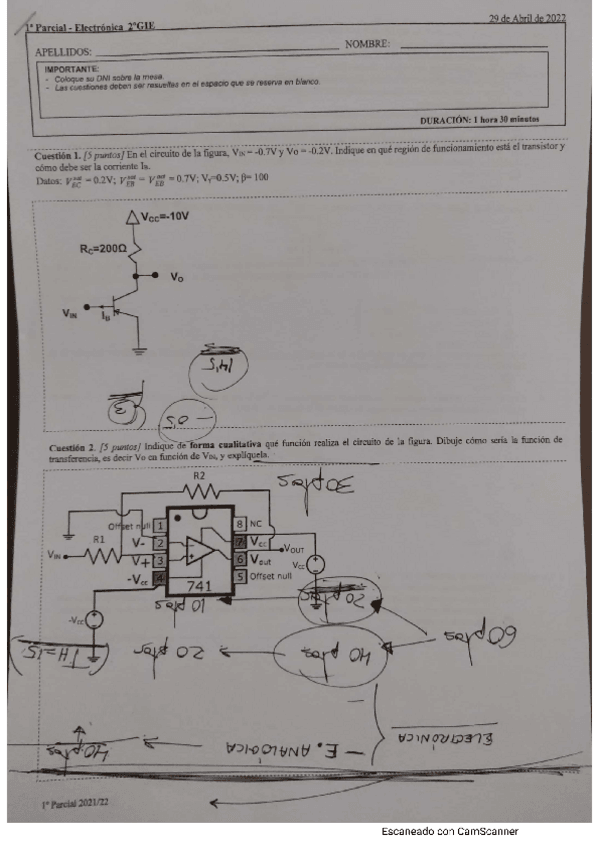 1º Parcial - Electrónica 2ºGIE
29 de Abril de 2022
APELLIDOS:
NOMBRE:
IMPORTANTE:
- Coloque su DNI sobre la mesa.
- Las cuestiones deben ser resueltas en el espacio que se reserva en blanco.
DURACIÓN: 1 hora 30 minutos
Cuestión 1. [5 puntos] En el circuito de la figura, VIN = -0.7V y Vo = -0.2V. Indique en qué región de funcionamiento está el transistor y
cómo debe ser la corriente IB.
Datos: VECsat = 0.2V; VEBsat = VEBact = 0.7V; Vγ=0.5V; β= 100
VCC=-10V
RC=200Ω
VO
VIN
IB
14,5
3
0,5
Cuestión 2. [5 puntos] Indique de forma cualitativa qué función realiza el circuito de la figura. Dibuje cómo sería la función de
transferencia, es decir Vo en función de VIN, y explíquela.
30 ptos
R2
Offset null 1
8 NC
R1
V- 2
7 Vcc
VIN
V+ 3
6 Vout
VOUT
-Vcc 4
5 Offset null
Vcc
741
10 ptos
20 ptos
-Vcc
60 ptos
20 ptos
40 ptos
ELECTRÓNICA
- E. ANALÓGICA
40 ptos
1º Parcial 2021/22
Escaneado con CamScanner